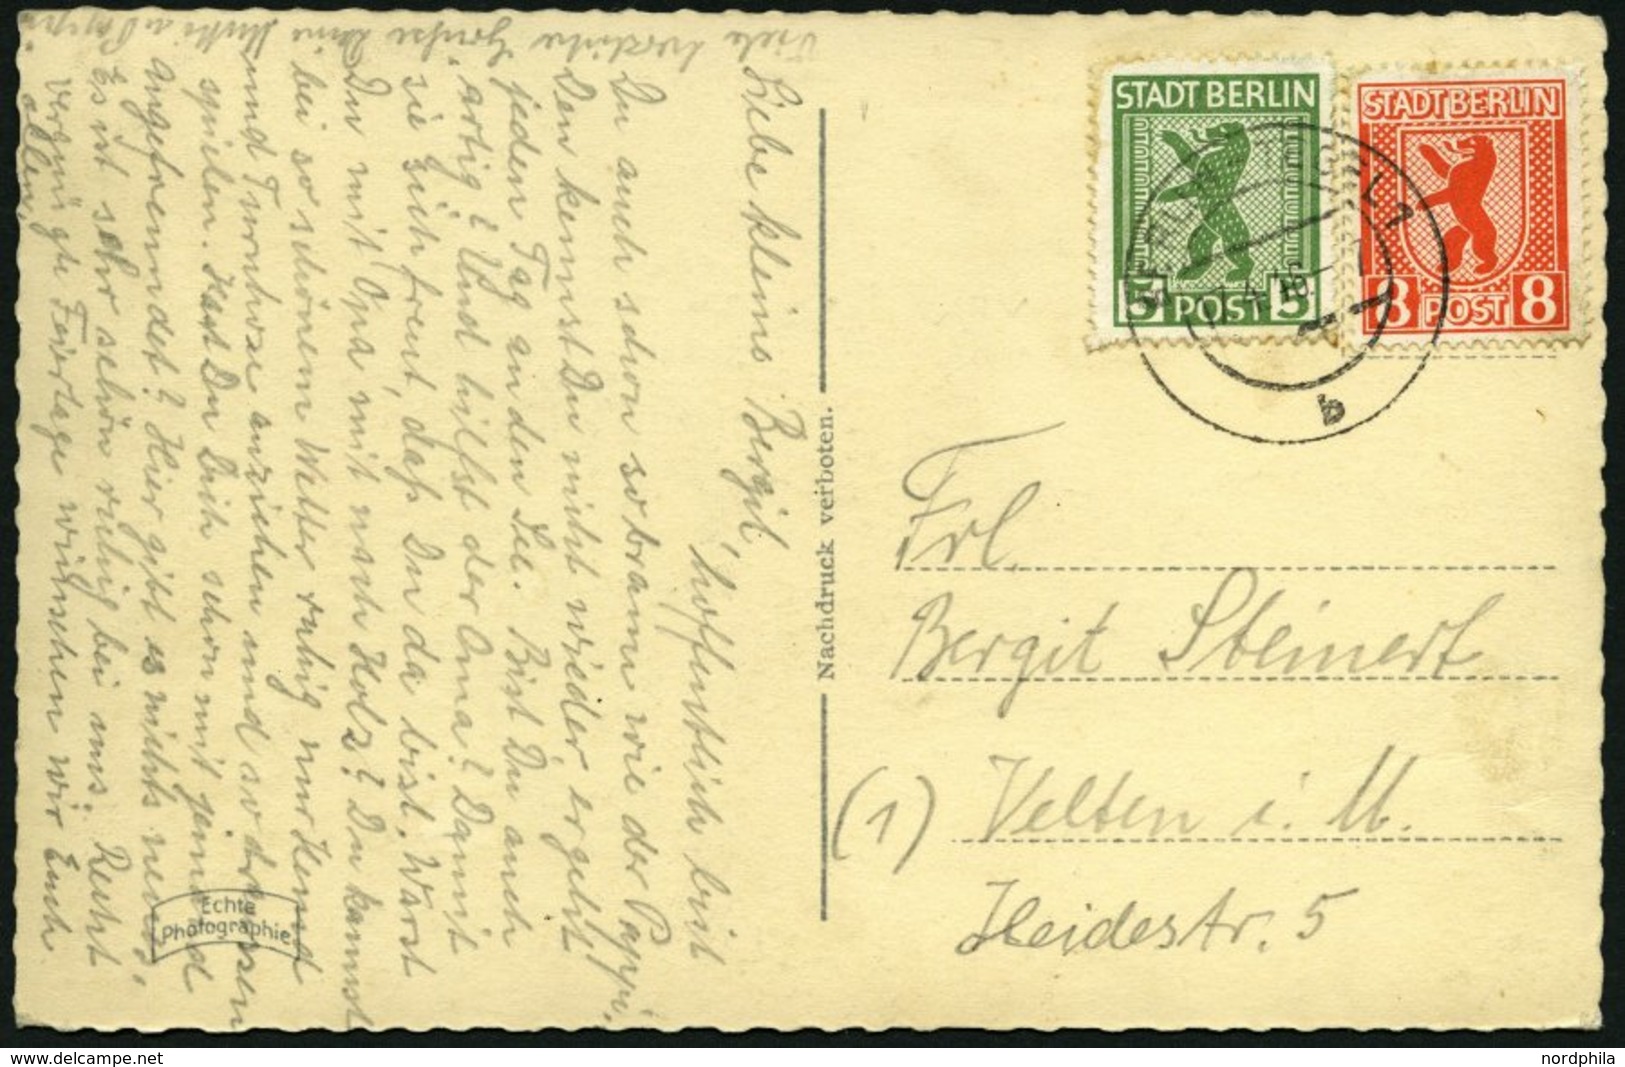 Viele herzliche Grüße Deine Mutti u. Pappi.
Liebe kleine Bergit,
hoffentlich bist
Du auch schon so braun wie der Pappi,
Den kennst Du nicht wieder, er geht
jeden Tag an den See. Bist Du auch
artig? Und hilfst der Oma? Damit
sie sich freut, daß Du da bist. Warst
Du mit Opa mit nach Holz? Du kannst
bei so schönem Wetter ruhig nur Hemd
und Turnhose anziehen und so draussen
spielen. Hast Du Dich schon mit jemand
angefreundet? Hier gibt es nichts neues,
Es ist sehr schön ruhig bei uns. Recht
vergnügte Feiertage wünschen wir Euch
allen,
Echte
Photographie
Nachdruck verboten.
STADT BERLIN
5 POST 5
STADT BERLIN
8 POST 8
b
Frl.
Bergit Steinert
(1) Velten i. M.
Heidestr. 5
www.delcampe.net
nordphila